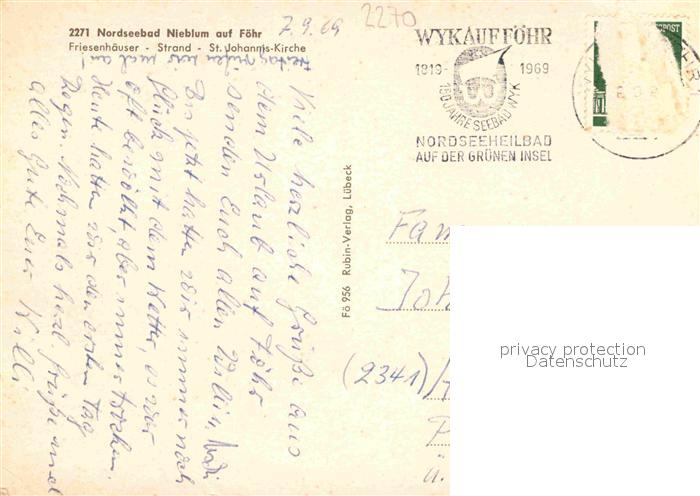 2271 Nordseebad Nieblum auf Föhr
Friesenhäuser - Strand - St. Johannis-Kirche
7.9.69
2270
WYK AUF FÖHR
1819-1969
150 JAHRE SEEBAD WYK
NORDSEEHEILBAD
AUF DER GRÜNEN INSEL
Freitag rufen wir mal an
Viele herzliche Grüße aus
dem Urlaub auf Föhr
senden Euch allen Willi u.
Bis jetzt hatten wir immer noch
Glück mit dem Wetter, es war
oft bewölkt, aber immer trocken.
Heute hatten wir den ersten Tag
Regen. Nochmals herzl. Grüße und
alles Gute Euer Willi
Fö 956 Rubin-Verlag, Lübeck
Fam
Joh
(2341)
ü.
privacy protection
Datenschutz